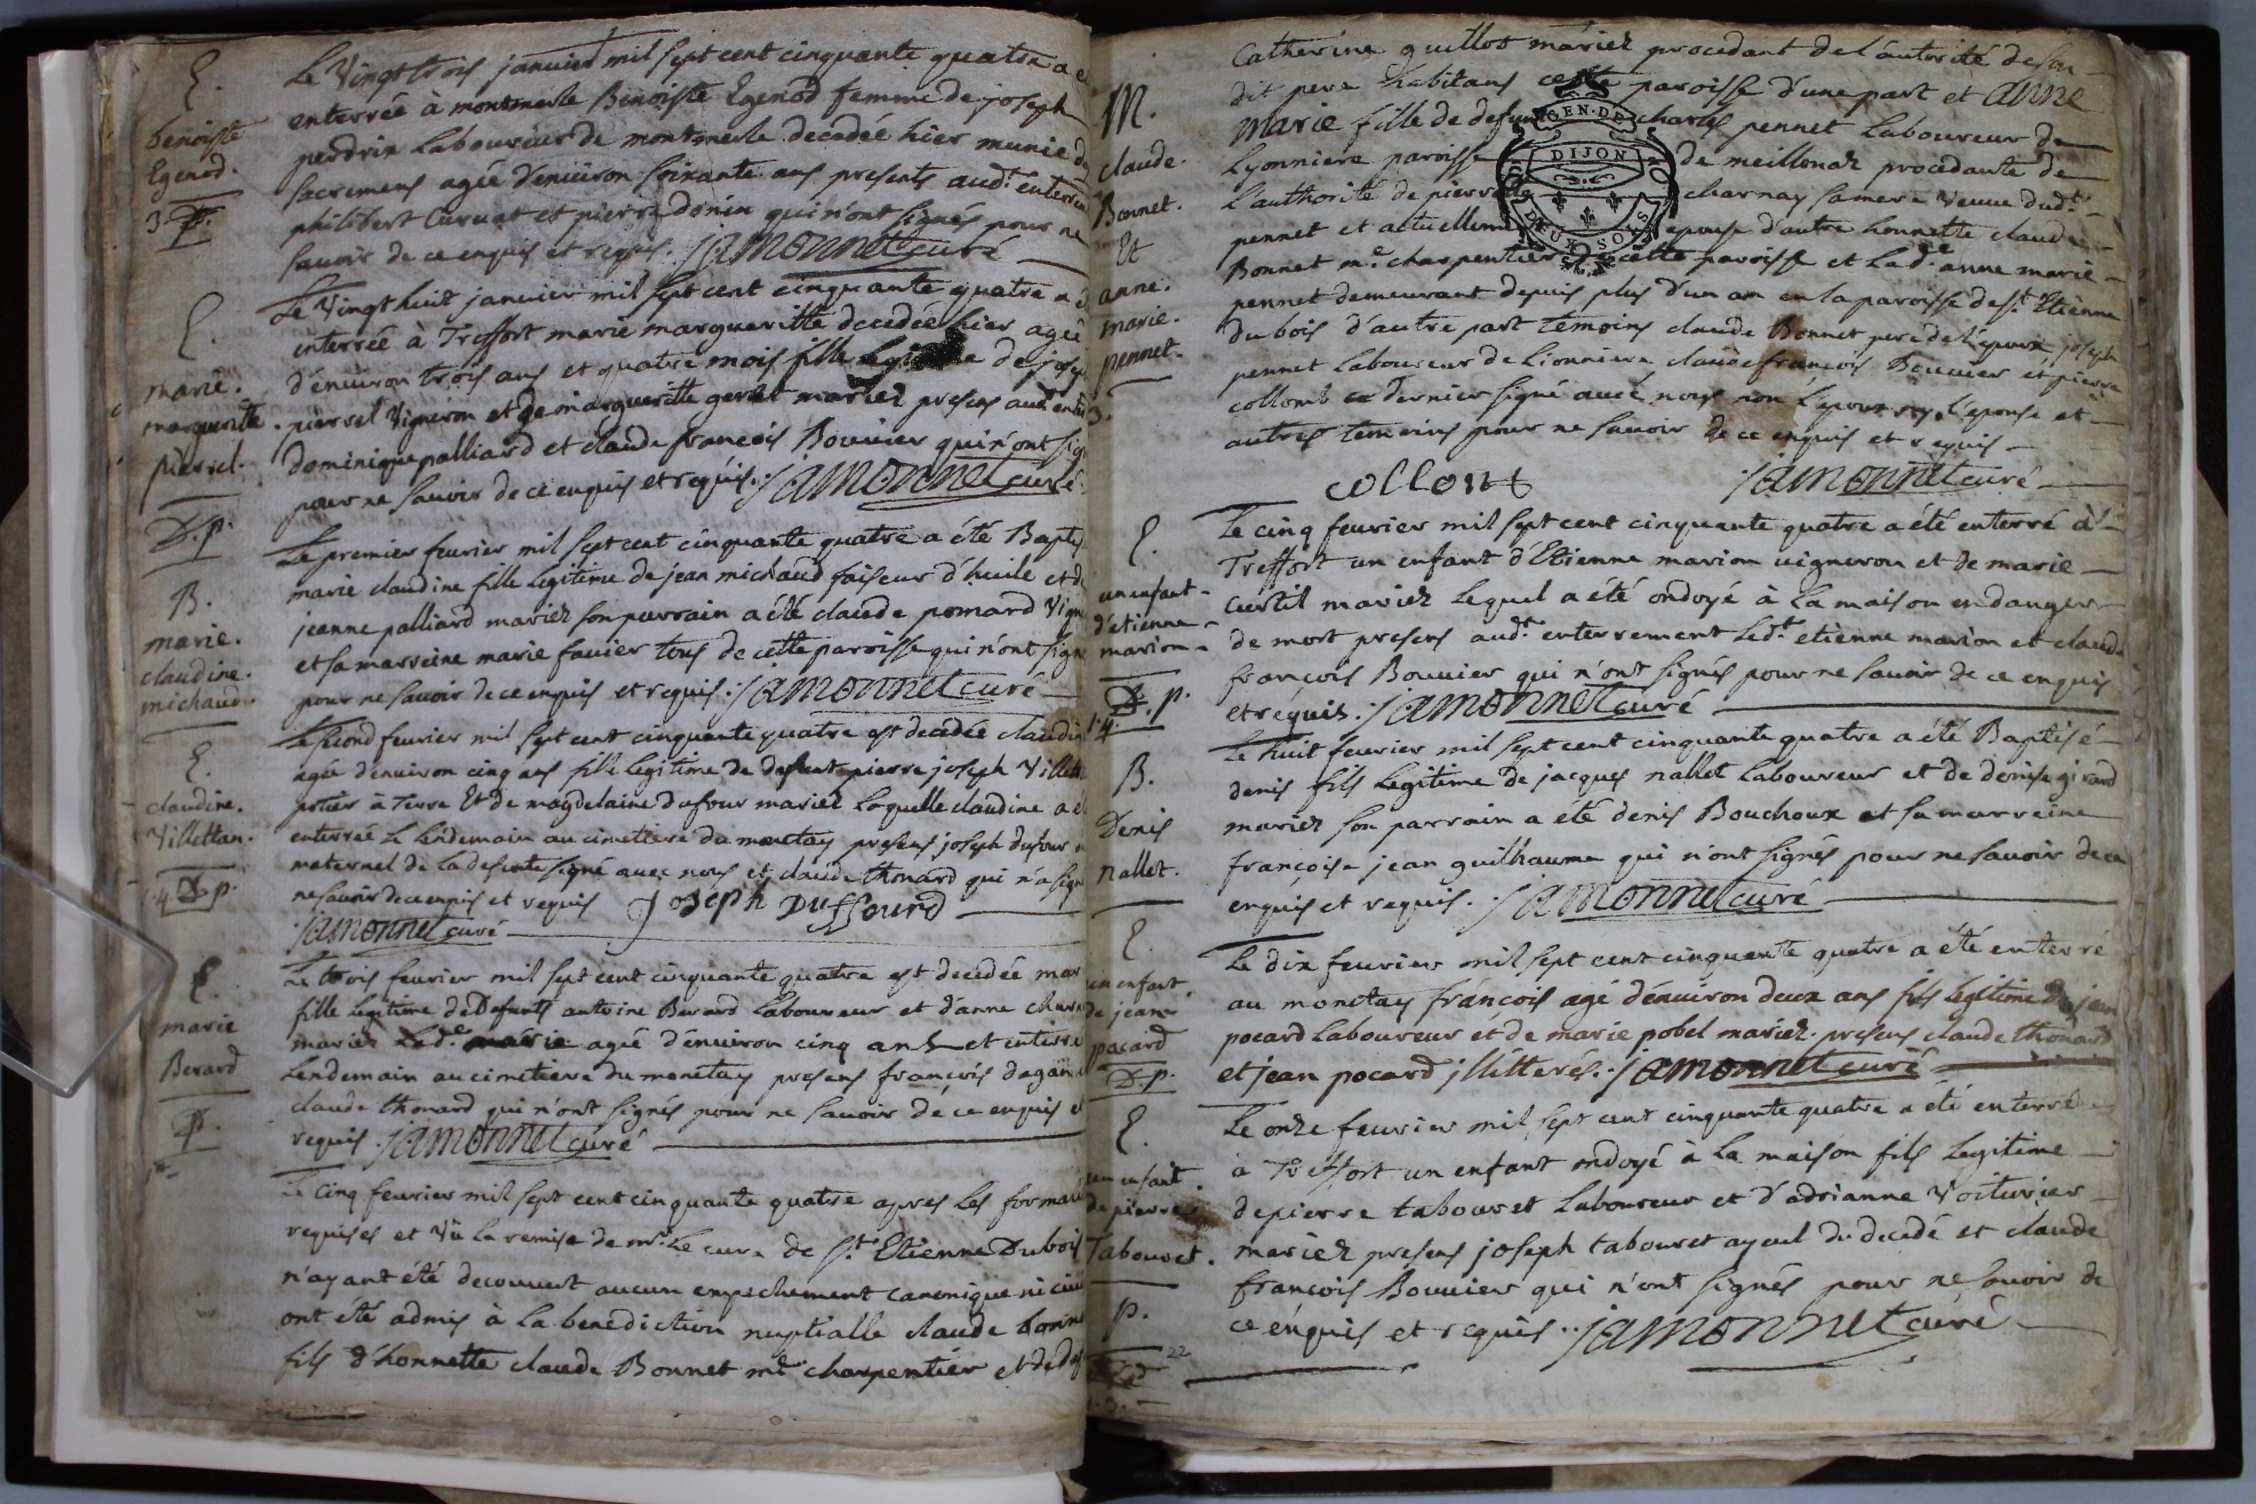 E.
benoiste
Egenod.
3 D.p.
Le Vingt trois janvier mil sept cent cinquante quatre a
enterrée à montmerle Benoiste Egenod femme de joseph
perdrix Laboureur de montmerle decedée hier munie
sacremens agée d'enuiron soixante ans presents aud.t
philibert Caruat et pierre donin qui n'ont signés pour ne
sauoir de ce enquis et requis. jamonnet curé
E.
marie.
marguerite.
pierrel.
D.p.
Le Vingt huit janvier mil sept cent cinquante quatre a
enterrée à Treffort marie margueritte decedée hier agée
d'enuiron trois ans et quatre mois fille de
pierrel Vigneron et de margueritte mariez presens aud.
dominique palliard et claude françois Bouuier qui n'ont
pour ne sauoir de ce enquis et requis. jamonnet curé
B.
marie.
claudine.
michaud.
Le premier feurier mil sept cent cinquante quatre a été
marie claudine fille legitime de jean michaud faiseur d'huile et
jeanne palliard mariez son parrain a été claude pomard
et sa marreine marie fauier tous de cette paroisse qui n'ont
pour ne sauoir de ce enquis et requis. jamonnet curé
E.
claudine.
Villettan.
4 D.p.
Le second feurier mil sept cent cinquante quatre est decedée
agée d'enuiron cinq ans fille legitime de defunt pierre joseph
potier à Terre Et de magdelaine dufour mariez laquelle claudine a
enterrée le lendemain au cimetiere du monetay presens joseph dufour
maternel de la defunte signé auec nous et claude thonard qui n'a
ne sauoir de ce enquis et requis Joseph Duffourd
jamonnet curé
E.
marie
Berard
p.
Le trois feurier mil sept cent cinquante quatre est decedée
fille legitime de Defunts antoine Berard Laboureur et d'anne
mariez Lad.e marie agée d'enuiron cinq ans et
Lendemain au cimetiere du monetay presens françois
claude thonard qui n'ont signés pour ne sauoir de ce enquis et
requis. jamonnet curé
Le cinq feurier mil sept cent cinquante quatre apres les
requises et Vû la remise de m.r Le cure de S.t Etienne Dubois
n'ayant été decouuert aucun empechement canonique ni
ont été admis à la benediction nuptialle claude
fils d'honnette claude Bonnet m.e charpentier et de
M.
claude.
Bonnet.
Et
anne.
marie.
pennet.
3.
Catherine guillot mariez procedant de l'autorité de son
dit pere habitans cette paroisse d'une part et anne
Marie fille de charles pennet Laboureur de
Lyonniere paroisse de meillonaz procedante de
L'authorité de pierrette charnay sa mere Veuue dud.t
pennet et epouse d'autre honnette claude
Bonnet m.e charpentier de cette paroisse et Lad.e anne marie
pennet demeurant depuis plus d'un an en la paroisse de S.t Etienne
du bois d'autre part temoins claude Bonnet pere de l'epoux, joseph
pennet Laboureur de Lionniere claude françois Bouuier et pierre
collomb ce dernier signé auec nous non L'epoux ny L'epouse et
autres temoins pour ne sauoir de ce enquis et requis
collont jamonnet curé
GEN. DE
DIJON
DEUX SOLS
E.
un enfant
d'etienne
marion
D.p.
4
Le cinq feurier mil sept cent cinquante quatre a été enterré à
Treffort un enfant d'Etienne marion uigneron et de marie
Curtil mariez Lequel a été ondoyé à la maison en danger
de mort presens aud.t enterrement Led.t etienne marion et claude
françois Bouuier qui n'ont signés pour ne sauoir de ce enquis
et requis. jamonnet curé
B.
Denis
nallet.
Le huit feurier mil sept cent cinquante quatre a été Baptisé
denis fils Legitime de jacques nallet Laboureur et de denise girard
mariez son parrain a été denis Bouchoux et sa marreine
françoise jean guilhaume qui n'ont signés pour ne sauoir de ce
enquis et requis. jamonnet curé
E.
un enfant
de jean
pacard
D.p.
Le dix feurier mil sept cent cinquante quatre a été enterré
au monetay françois agé d'enuiron deux ans fils legitime de jean
pocard Laboureur et de marie pobel mariez. presens claude thonard
et jean pocard jllitterés. jamonnet curé
E.
un enfant
de pierre
Tabouret.
p.
22
Le onze feurier mil sept cent cinquante quatre a été enterré
a Treffort un enfant ondoyé à La maison fils legitime
de pierre tabouret Laboureur et d'adrianne Voiturier
mariez presens joseph tabouret ayeul du decedé et claude
françois Bouuier qui n'ont signés pour ne sauoir de
ce enquis et requis. jamonnet curé